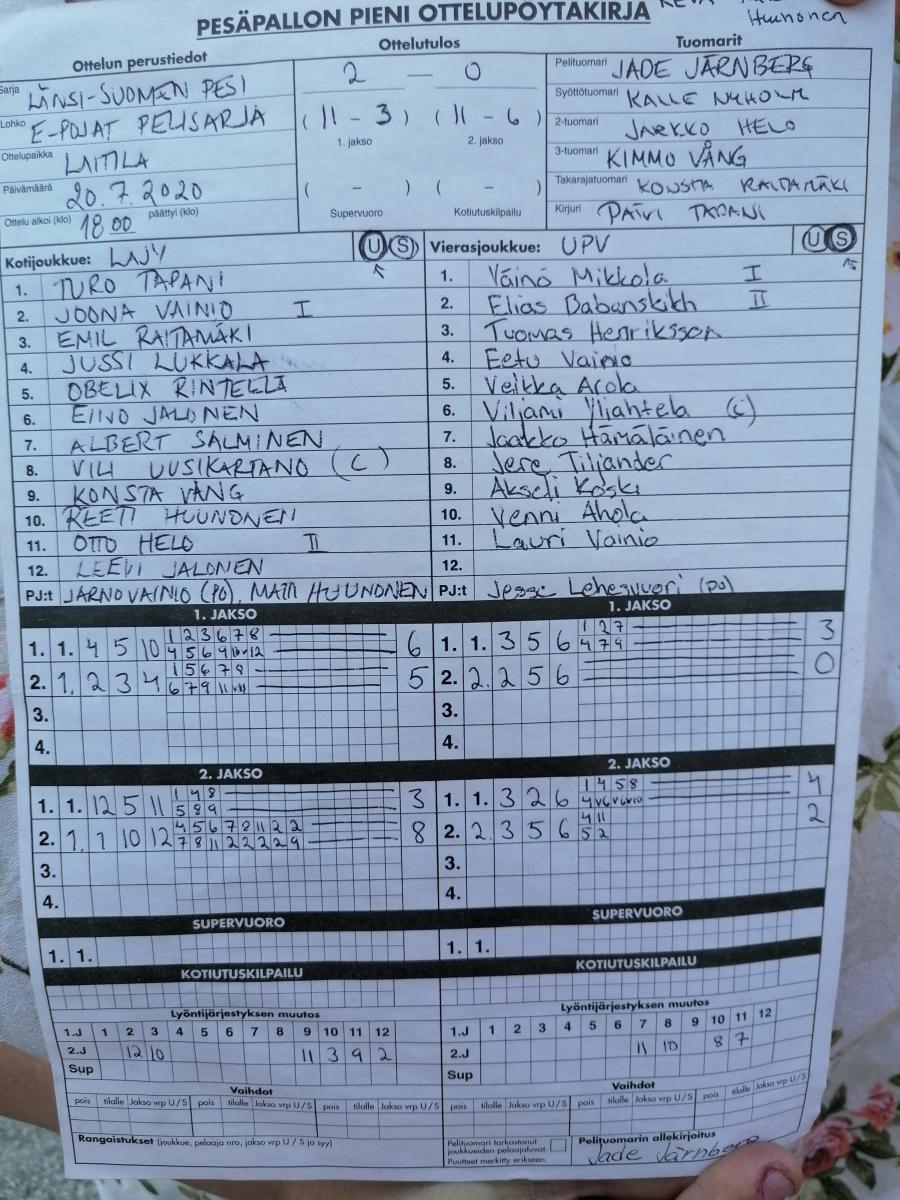 PESÄPALLON PIENI OTTELUPÖYTÄKIRJA
Huunonen
Ottelun perustiedot
Sarja LÄNSI-SUOMEN PESI
Lohko E-POJAT PELISARJA
Ottelupaikka LAITILA
Päivämäärä 20.7.2020
Ottelu alkoi (klo) 18 00 päättyi (klo)
Ottelutulos
2 — 0
( 11 - 3 ) ( 11 - 6 )
1. jakso 2. jakso
( - ) ( - )
Supervuoro Kotiutuskilpailu
Tuomarit
Pelituomari JADE JÄRNBERG
Syöttötuomari KALLE NYHOLM
2-tuomari JARKKO HELO
3-tuomari KIMMO VÅNG
Takarajatuomari KONSTA RAITAMÄKI
Kirjuri PÄIVI TAPANI
Kotijoukkue: LAJY U S
1. TURO TAPANI
2. JOONA VAINIO I
3. EMIL RAITAMÄKI
4. JUSSI LUKKALA
5. OBELIX RINTEELÄ
6. EINO JALONEN
7. ALBERT SALMINEN
8. VILI UUSIKARTANO (C)
9. KONSTA VÅNG
10. REETI HUUNONEN
11. OTTO HELO II
12. LEEVI JALONEN
PJ:t JARNO VAINIO (PO), MATTI HUUNONEN
Vierasjoukkue: UPV U S
1. Väinö Mikkola I
2. Elias Babanskikh II
3. Tuomas Henriksson
4. Eetu Vainio
5. Veikka Arola
6. Viljami Yliahtela (C)
7. Jaakko Hämäläinen
8. Jere Tiljander
9. Akseli Koski
10. Venni Ahola
11. Lauri Vainio
12.
PJ:t Jesse Lehesvuori (po)
1. JAKSO
1. 1. 4 5 10 1 2 3 6 7 8 6
4 5 6 9 10 12
2. 1. 2 3 4 1 5 6 7 8 5
6 7 9 11
3.
4.
1. JAKSO
1. 1. 3 5 6 1 3 7 3
4 7 9
2. 2. 2 5 6 0
3.
4.
2. JAKSO
1. 1. 12 5 11 1 4 8 3
5 8 9
2. 1. 1 10 12 4 5 6 7 8 11 2 2 8
7 8 11 2 2 2 2 9
3.
4.
2. JAKSO
1. 1. 3 2 6 1 4 5 8 4
2. 2. 3 5 6 4 11 2
5 2
3.
4.
SUPERVUORO
1. 1.
SUPERVUORO
1. 1.
KOTIUTUSKILPAILU
KOTIUTUSKILPAILU
Lyöntijärjestyksen muutos
1.J 1 2 3 4 5 6 7 8 9 10 11 12
2.J 12 10 11 3 9 2
Sup
Lyöntijärjestyksen muutos
1.J 1 2 3 4 5 6 7 8 9 10 11 12
2.J 11 10 8 7
Sup
Vaihdot
pois tilalle Jakso vrp U / S pois tilalle Jakso vrp U / S pois tilalle Jakso vrp U / S
Vaihdot
pois tilalle Jakso vrp U / S pois tilalle Jakso vrp U / S pois tilalle Jakso vrp U / S
Rangaistukset (joukkue, pelaaja nro, jakso vrp U / S ja syy)
Pelituomari tarkastanut
joukkueiden pelaajaluvat.
Puutteet merkitty erikseen.
Pelituomarin allekirjoitus
Jade Järnberg